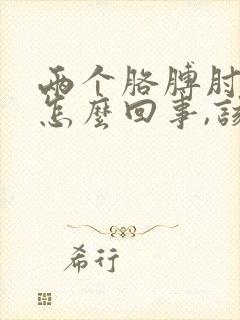 两个胳膊肘
怎麼回事,該
希行